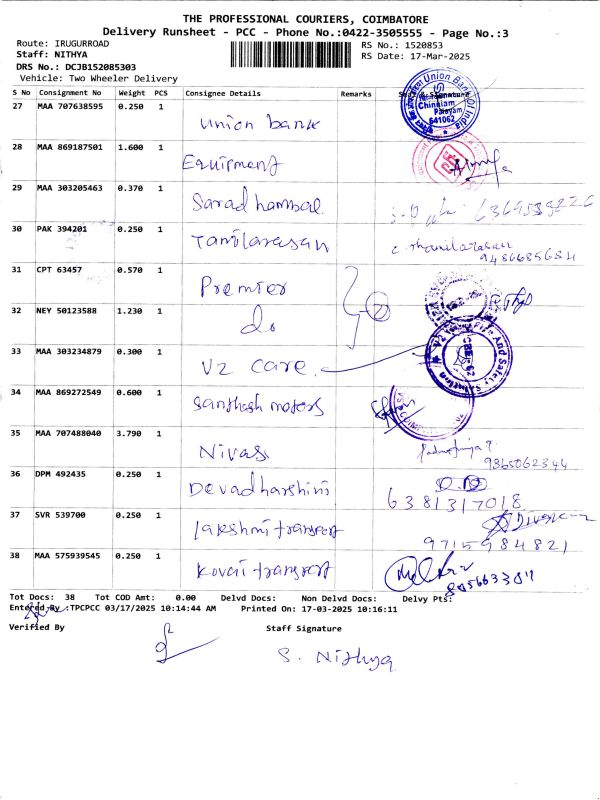 THE PROFESSIONAL COURIERS, COIMBATORE
Delivery Runsheet - PCC - Phone No.:0422-3505555 - Page No.:3
Route: IRUGURROAD
RS No.: 1520853
Staff: NITHYA
RS Date: 17-Mar-2025
DRS No.: DCJB152085303
Vehicle: Two Wheeler Delivery
S No Consignment No Weight PCS Consignee Details Remarks
27 MAA 707638595 0.250 1 Union bank
Union Bank Of India
Chinniam Palayam
641062
28 MAA 869187501 1.600 1 Equipment
29 MAA 303205463 0.370 1 Saradhambal
30 PAK 394201 0.250 1 Tamilarasan C. Thamilarasan
9486685684
31 CPT 63457 0.570 1 Premier
32 NEY 50123588 1.230 1 do 2
33 MAA 303234879 0.300 1 V2 care.
V2 Fire And Safety
CBE-62
34 MAA 869272549 0.600 1 Santhosh motors
35 MAA 707488040 3.790 1 Nivas
9865062344
36 DPM 492435 0.250 1 Devadharshini
6381317018
37 SVR 539700 0.250 1 lakshmi transport
9715984821
38 MAA 575939545 0.250 1 Kovai transport
Tot Docs: 38 Tot COD Amt: 0.00 Delvd Docs: Non Delvd Docs: Delvy Pts:
Entered By :TPCPCC 03/17/2025 10:14:44 AM Printed On: 17-03-2025 10:16:11
Verified By Staff Signature
S. Nithya